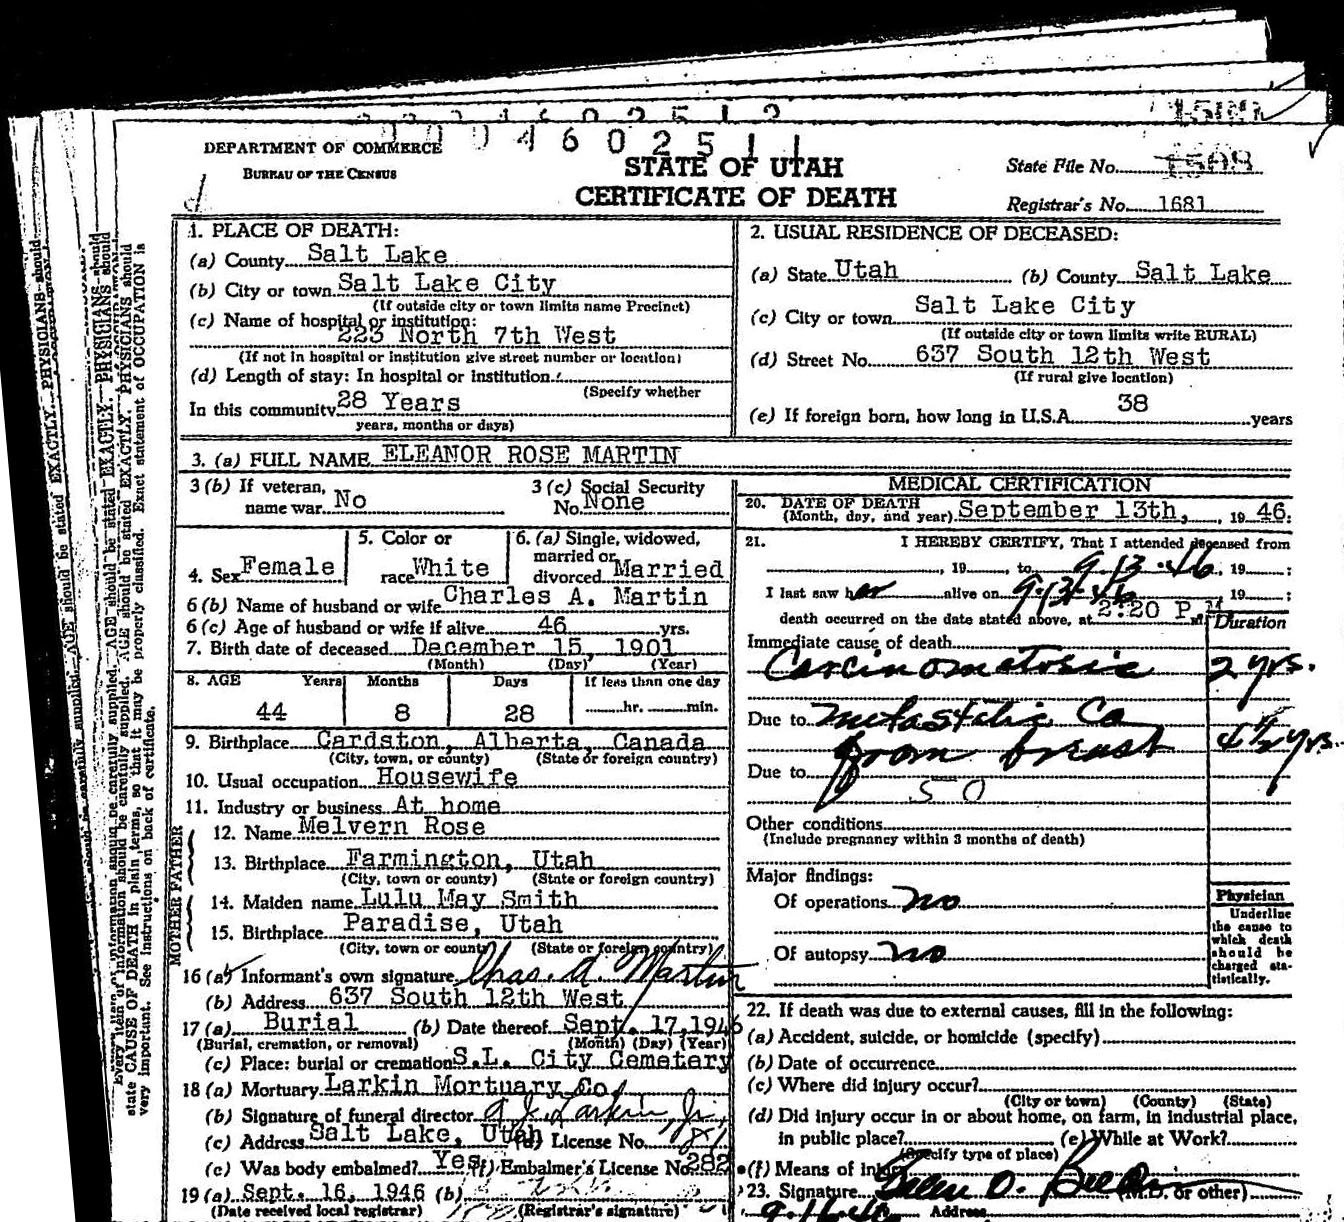 0 0 4 6 0 2 5 1 1
DEPARTMENT OF COMMERCE
BUREAU OF THE CENSUS
STATE OF UTAH
CERTIFICATE OF DEATH
State File No.
Registrar's No. 1681
1. PLACE OF DEATH:
(a) County Salt Lake
(b) City or town Salt Lake City
(If outside city or town limits name Precinct)
(c) Name of hospital or institution:
223 North 7th West
(If not in hospital or institution give street number or location)
(d) Length of stay: In hospital or institution
(Specify whether
In this community 28 Years
years, months or days)
2. USUAL RESIDENCE OF DECEASED:
(a) State Utah (b) County Salt Lake
(c) City or town Salt Lake City
(If outside city or town limits write RURAL)
(d) Street No. 637 South 12th West
(If rural give location)
(e) If foreign born, how long in U.S.A. 38 years
3. (a) FULL NAME ELEANOR ROSE MARTIN
3 (b) If veteran, name war No
3 (c) Social Security No. None
4. Sex Female
5. Color or race White
6. (a) Single, widowed, married or divorced Married
6 (b) Name of husband or wife Charles A. Martin
6 (c) Age of husband or wife if alive 46 yrs.
7. Birth date of deceased December 15, 1901
(Month) (Day) (Year)
8. AGE Years Months Days If less than one day
44 8 28 hr. min.
9. Birthplace Cardston, Alberta, Canada
(City, town, or county) (State or foreign country)
10. Usual occupation Housewife
11. Industry or business At home
FATHER
12. Name Melvern Rose
13. Birthplace Farmington, Utah
(City, town or county) (State or foreign country)
MOTHER
14. Maiden name Lulu May Smith
15. Birthplace Paradise, Utah
(City, town or county) (State or foreign country)
16 (a) Informant's own signature Chas. A. Martin
(b) Address 637 South 12th West
17 (a) Burial (b) Date thereof Sept. 17, 1946
(Burial, cremation, or removal) (Month) (Day) (Year)
(c) Place: burial or cremation S.L. City Cemetery
18 (a) Mortuary Larkin Mortuary Co.
(b) Signature of funeral director A. J. Larkin, Jr.
(c) Address Salt Lake, Utah (d) License No. 81
(e) Was body embalmed? Yes (f) Embalmer's License No. 282
19 (a) Sept. 16, 1946 (b)
(Date received local registrar) (Registrar's signature)
MEDICAL CERTIFICATION
20. DATE OF DEATH
(Month, day, and year) September 13th, 19 46.
21. I HEREBY CERTIFY, That I attended deceased from
, 19 , to 9-13-46, 19 ;
I last saw her alive on 9-13-46, 19 ;
death occurred on the date stated above, at 2:20 P.M.
Duration
Immediate cause of death
Carcinomatosis 2 yrs.
Due to metastatic Ca
from breast 4 1/2 yrs.
Due to
50
Other conditions
(Include pregnancy within 3 months of death)
Major findings:
Of operations no
Of autopsy no
Physician
Underline
the cause to
which death
should be
charged sta-
tistically.
22. If death was due to external causes, fill in the following:
(a) Accident, suicide, or homicide (specify)
(b) Date of occurrence
(c) Where did injury occur?
(City or town) (County) (State)
(d) Did injury occur in or about home, on farm, in industrial place,
in public place? (e) While at Work?
(Specify type of place)
(f) Means of injury
23. Signature (M.D. or other)
9-16-46 Address
state CAUSE OF DEATH in plain terms, so that it may be properly classified. Exact statement of OCCUPATION is
very important. See instructions on back of certificate.